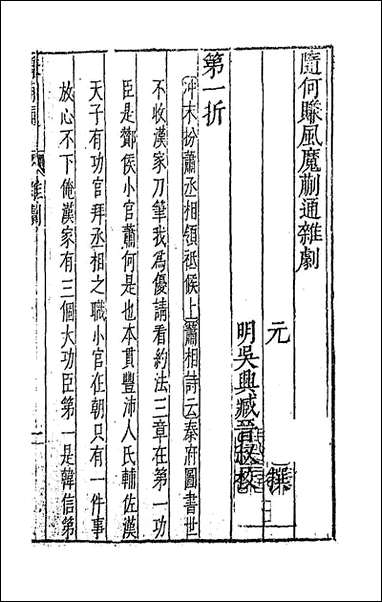 隨何賺風魔蒯通雜劇
元 撰
明吳興臧晉叔校
第一折
冲末扮蕭丞相領祗候上蕭相詩云秦府圖書世
不收漢家刀筆我爲優請看約法三章在第一功
臣是酇侯小官蕭何是也本貫豐沛人氏輔佐漢
天子有功官拜丞相之職小官在朝只有一件事
放心不下俺漢家有三個大功臣第一是韓信第